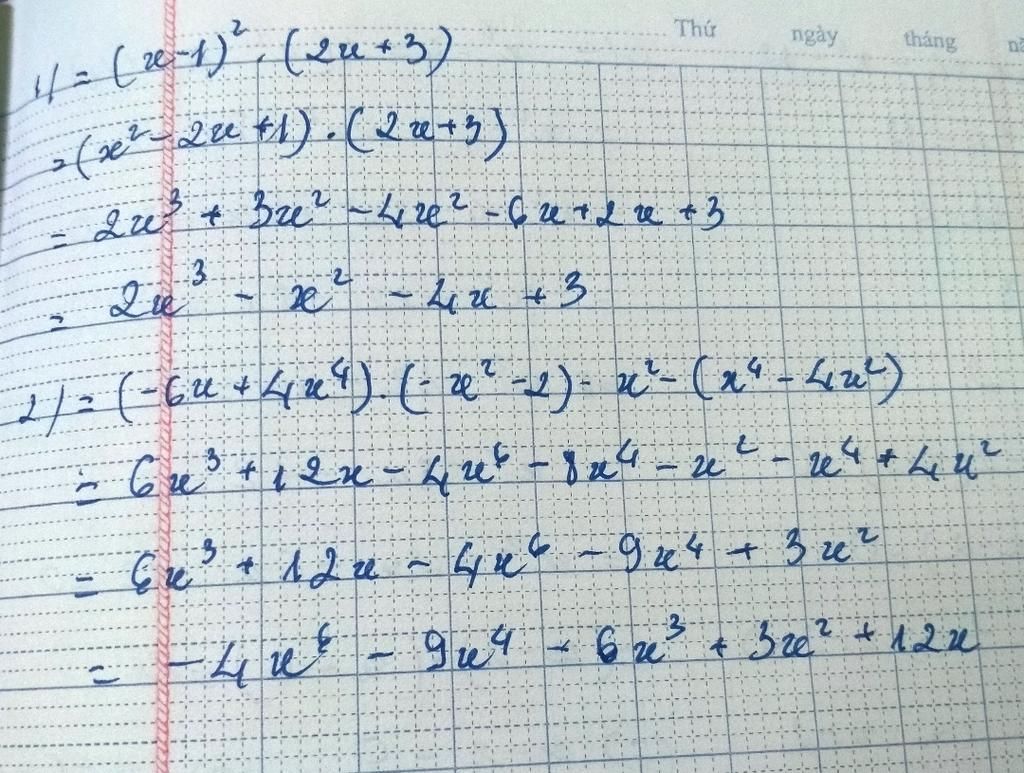 Thứ ngày tháng
1) = (x-1)² . (2x+3)
= (x² - 2x + 1) . (2x+3)
= 2x³ + 3x² - 4x² - 6x + 2x + 3
= 2x³ - x² - 4x + 3
2) = (-6x + 4x⁴) . (-x² - 2) - x² - (x⁴ - 4x²)
= 6x³ + 12x - 4x⁶ - 8x⁴ - x² - x⁴ + 4x²
= 6x³ + 12x - 4x⁶ - 9x⁴ + 3x²
= -4x⁶ - 9x⁴ - 6x³ + 3x² + 12x